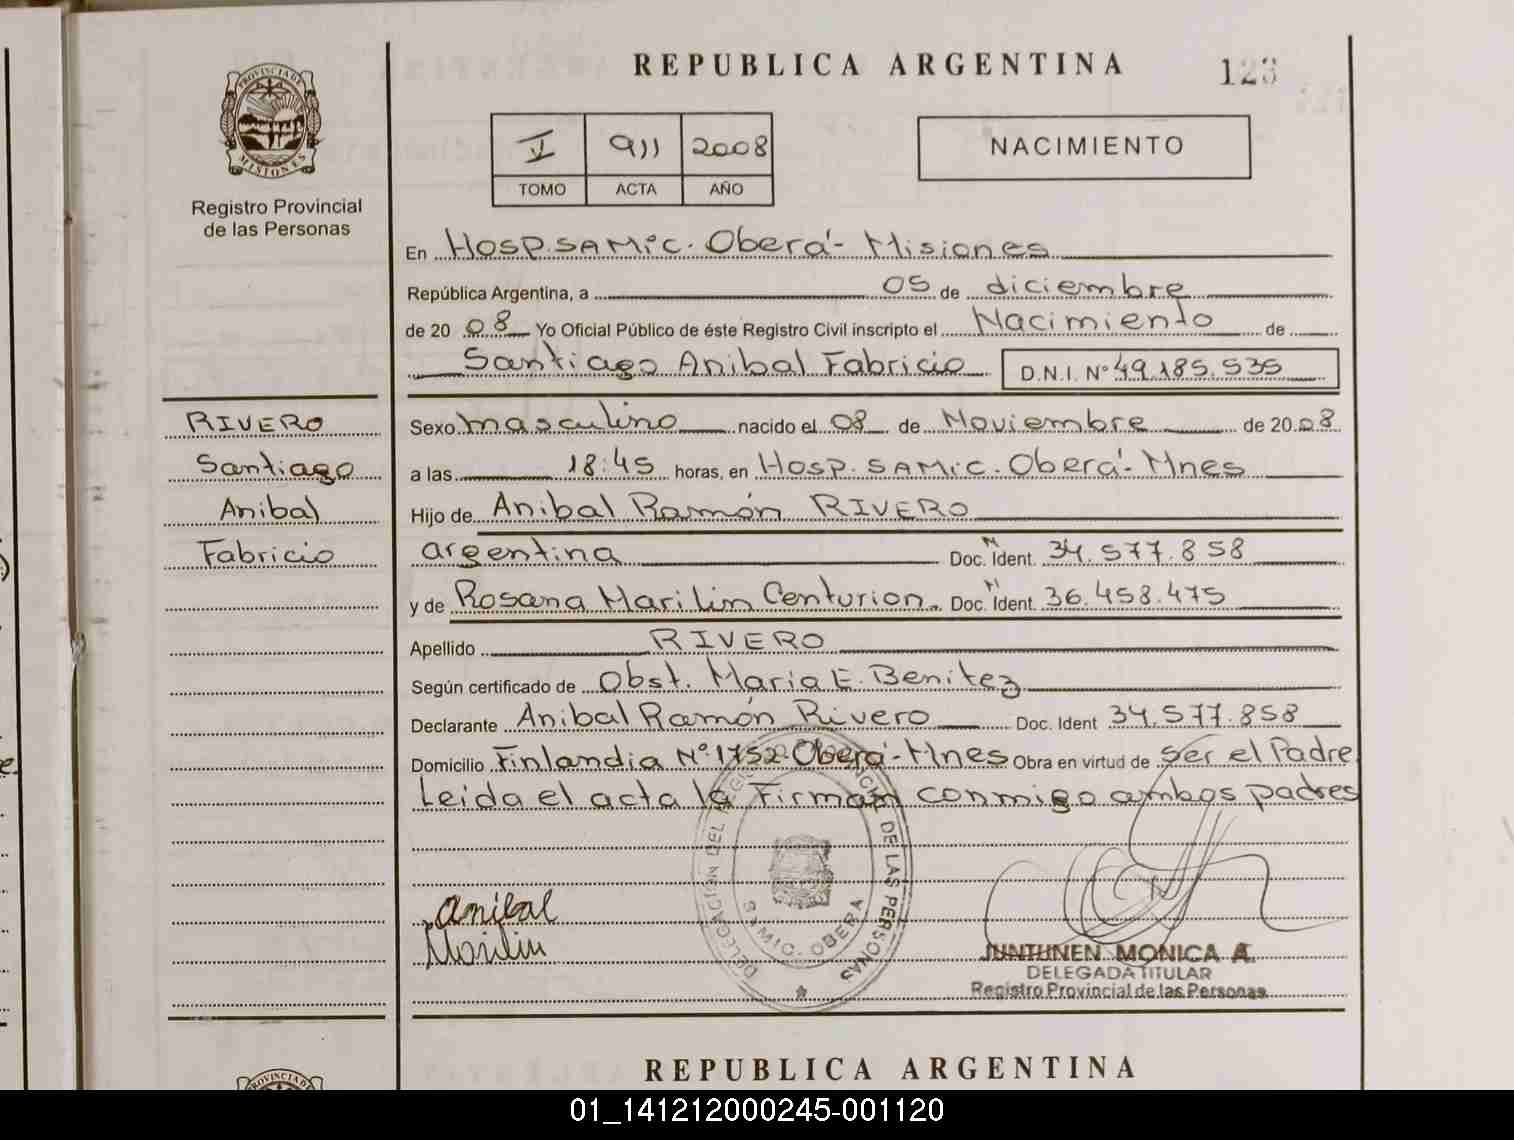 REPUBLICA ARGENTINA
123
PROVINCIA DE MISIONES
Registro Provincial
de las Personas
V 911 2008
TOMO ACTA AÑO
NACIMIENTO
En Hosp. SAMIC. Oberá - Misiones
República Argentina, a 05 de diciembre
de 20 08 Yo Oficial Público de éste Registro Civil inscripto el Nacimiento de
Santiago Anibal Fabricio D.N.I. Nº 49.185.535
RIVERO
Santiago
Anibal
Fabricio
Sexo masculino nacido el 08 de Noviembre de 20 08
a las 18:45 horas, en Hosp. SAMIC. Oberá - Mnes
Hijo de Anibal Ramón RIVERO
argentina Doc. Ident. 34.577.858
y de Rosana Marilin Centurion. Doc. Ident. 36.458.475
Apellido RIVERO
Según certificado de Obst. Maria E. Benitez
Declarante Anibal Ramón Rivero Doc. Ident 34.577.858
Domicilio Finlandia Nº 1752 Oberá - Mnes Obra en virtud de ser el Padre
Leida el acta la Firman conmigo ambos padres
DELEGACION DEL REGISTRO PROVINCIAL DE LAS PERSONAS
SAMIC. OBERA
Anibal
Marilin
JUNTUNEN MONICA A.
DELEGADA TITULAR
Registro Provincial de las Personas
REPUBLICA ARGENTINA
PROVINCIA DE
01_141212000245-001120